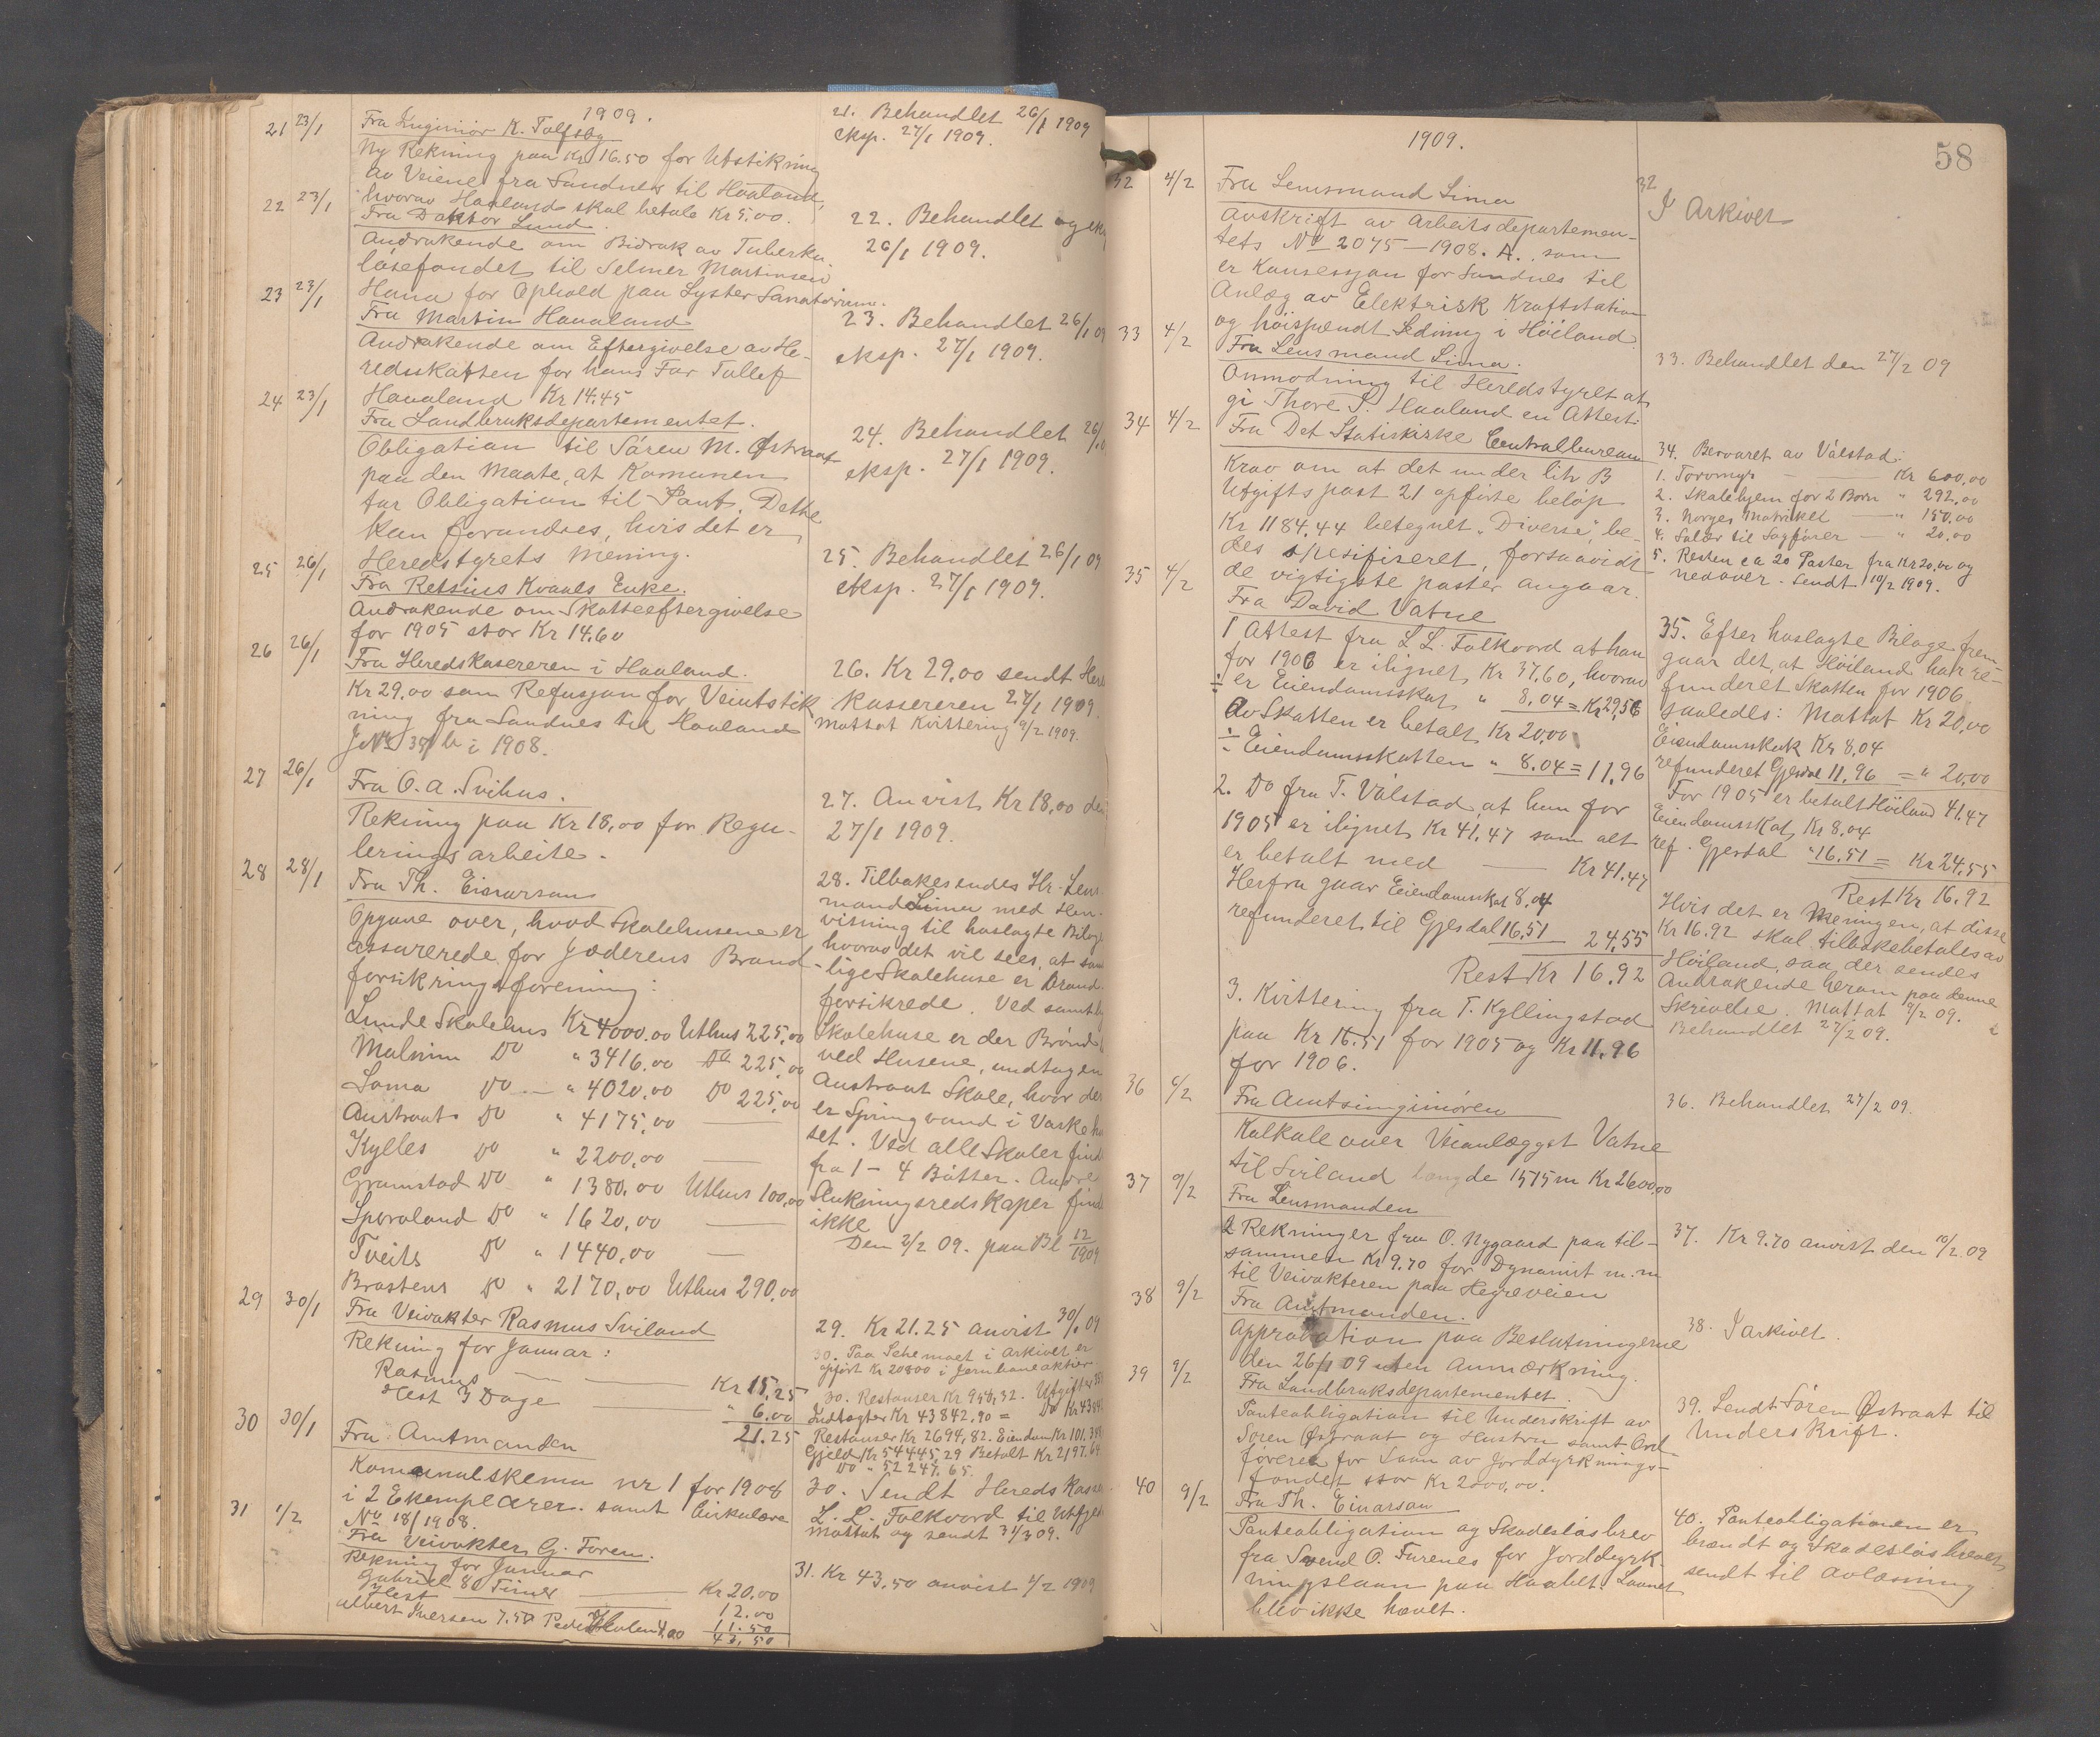 1909.
21 23/1 Fra Ingeniör K. Tolfsby
Ny Rekning paa Kr 16.50 for Utstikning
av Veiene fra Sandnes til Haaland,
hvorav Haaland skal betale Kr 5,00.
22 23/1 Fra Doktor Lund.
Andrakende om Bidrak av Tuberku-
läsefondet til Selmer Martinsen
Hana for Ophold paa Lyster Sanatorium.
23 23/1 Fra Martin Havaland
Andrakende om Eftergivelse av He-
redsskatten for hans Far Tollef
Havaland Kr 14.45
24 23/1 Fra Landbruksdepartementet.
Obligation til Sören M. Østraat
paa den Maate, at Komunen
tar Obligation til Pant. Dette
kan forandres, hvis det er
Heredstyrets Mening.
25 26/1 Fra Retsius Kvaals Enke.
Andrakende om Skatteeftergivelse
for 1905 stor Kr 14.60
26 26/1 Fra Heredskasereren i Haaland.
Kr 29.00 som Refusjon for Veiutstik
ning fra Sandnes til Haaland
J.No 351 b i 1908.
27 26/1 Fra O. A. Svihus.
Rekning paa Kr 18,00 for Regu-
leringsarbeite.
28 28/1 Fra Th. Einarsen
Opgave over, hvad Skolehusene er
assurerede for Jæderens Brand
forsikringsforening:
Lunde Skolehus Kr 4000.00 Uthus 225,00
Malmim Do " 3416,00 Do 225,00
Soma Do — " 4020,00 Do 225,00
Austraat Do " 4175,00 —
Kylles Do " 2200,00 —
Gramstad Do " 1380,00 Uthus 100,00
Sporaland Do " 1620,00 —
Tveits Do " 1440,00 —
Brastens Do " 2170,00 Uthus 290,00
29 30/1 Fra Veivokter Rasmus Sviland
Rekning for Januar:
Rasmus — — Kr 15,25
Hest 3 Dage — " 6.00
21.25
30 30/1 Fra Amtmanden
Komunalskema nr 1 for 1908
i 2 Ekemplarer. samt Cirkulære
No 18/1908.
31 1/2 Fra Veivokter G. Foren.
Rekning for Januar
Gabriel 80 Timer — Kr 20.00
Hest — 12.00
Albert Iversen 7.50 Peder Holen 4,00 11.50
43,50
21. Behandlet 26/1 1909
eksp. 27/1 1909.
22. Behandlet og eks
26/1 1909.
23. Behandlet 26/1 09
eksp. 27/1 1909.
24. Behandlet 26/1 0
eksp. 27/1 1909.
25. Behandlet 26/1 09
eksp. 27/1 1909.
26. Kr 29,00 sendt Here
kassereren 27/1 1909.
Mottat Kvittering 9/2 1909.
27. Anvist Kr 18,00 den
27/1 1909.
28. Tilbakesendes Hr. Lens
mand Lima med Hen-
visning til haslagte Bilag
hvorav det vil sees, at sam
lige Skolehuse er Brand-
forsikrede. Ved samtl
Skolehuse er der Brönd
ved Husene, undtagen
Austraat Skole, hvor der
er Springvand i Vaskehu
set. Ved alle Skoler find
fra 1 - 4 Bötter. Andre
Slukningsredskaper find
ikke
Den 2/2 09. paa Bl 12/1909
29. Kr 21.25 anvist 30/1 09
30. Paa Schemaet i arkivet er
opfört Kr 20800 i Jernbaneaktier.
30. Restanser Kr 958,32. Utgifter
Indtægter Kr 43842.90 = Do Kr 4384
Restanser Kr 2694,82. Eiendom Kr 101,
Gjeld Kr 54445,29 Betalt Kr 2197.64
Do " 52247.65.
30. Sendt Hereds Kasse
L. L. Folkvord til Utfyl
Mottat og sendt 31/3 09.
31. Kr 43,50 anvist 1/2 1909
58
1909.
32 4/2 Fra Lensmand Lima
Avskrift av Arbeitsdepartemen-
tets No 2075 — 1908. A., som
er Konsesjon for Sandnes til
Anlæg av Elektrisk Kraftstation
og höispændt Ledning i Höiland.
33 4/2 Fra Lensmand Lima.
Onmodning til Heredstyret at
gi Thore P. Haaland en Attest.
34 4/2 Fra Det Statistiske Centralbureau
Krav om at det under litr B
Utgiftspost 21 opförte belöp
Kr 1184,44 betegnet "Diverse", be-
des spesifiseret, forsaavidt
de vigtigste poster angaar.
35 4/2 Fra David Vatne
1 Attest fra L. L. Folkvord at han
for 1906 er ilignet Kr 37,60, hvorav
÷ er Eiendomsskat " 8,04 = Kr 29,56
Av Skatten er betalt Kr 20,00
÷ Eiendomsskatten " 8.04 = 11,96
2. Do fra T. Válstad, at han for
1905 er ilignet Kr 41.47 som alt
er betalt med — Kr 41.47
Herfra gaar Eiendomsskat 8,04
refunderet til Gjesdal 16,51 24,55
Rest Kr 16.92
3. Kvittering fra T. Kyllingstad
paa Kr 16.51 for 1905 og Kr 11.96
for 1906.
36 6/2 Fra Amtsingeniören
Kalkule over Veianlægget Vatne
til Sviland længde 1575 m Kr 2600,00
37 9/2 Fra Lensmanden
2 Rekninger fra O. Nygaard paa til-
sammen Kr 9.70 for Dynamit m.m
til Veivokteren paa Hegreveien
38 9/2 Fra Amtmanden.
Approbation paa Beslutningerne
den 26/1 09 uten Anmærkning.
39 9/2 Fra Landbruksdepartementet.
Panteobligation til Underskrift av
Sören Østraat og Hustru samt Ord-
föreren for Laan av Jorddyrknings-
fondet stor Kr 2000,00.
40 9/2 Fra Th. Einarsen
Panteobligation og Skadeslösbrev
fra Svend O. Furenes for Jorddyrk-
ningslaan paa Haabet. Laanet
blev ikke hævet.
32
I Arkivet
33. Behandlet den 27/2 09
34. Besvaret av Válstad:
1. Torvmyr — Kr 600,00
2. Skolehjem for 2 Born " 292,00
3. Norges Matrikel — " 150,00
4. Salær til Sagförer — " 20,00
5. Resten ca 20 Poster fra Kr 20,00 og
nedover. Sendt 10/2 1909.
35. Efter haslagte Bilage frem-
gaar det, at Höiland har re-
funderet Skatten for 1906
saaledes: Mottat Kr 20,00
Eiendomsskat Kr 8.04
refunderet Gjesdal 11,96 = " 20,00
For 1905 er betalt Höiland 41.47
Eiendomsskat Kr 8,04
ref. Gjesdal " 16.51 = Kr 24.55
Rest Kr 16.92
Hvis det er Meningen, at disse
Kr 16.92 skal tilbakebetales av
Höiland, saa der sendes
Andrakende herom paa denne
Skrivelse. Mottat 9/2 09.
Behandlet 27/2 09.
36. Behandlet 27/2 09.
37. Kr 9.70 anvist den 10/2 09
38. I arkivet.
39. Sendt Sören Østraat til
Underskrift.
40. Panteobligationen er
brændt og Skadeslösbrevet
sendt til Avlæsning